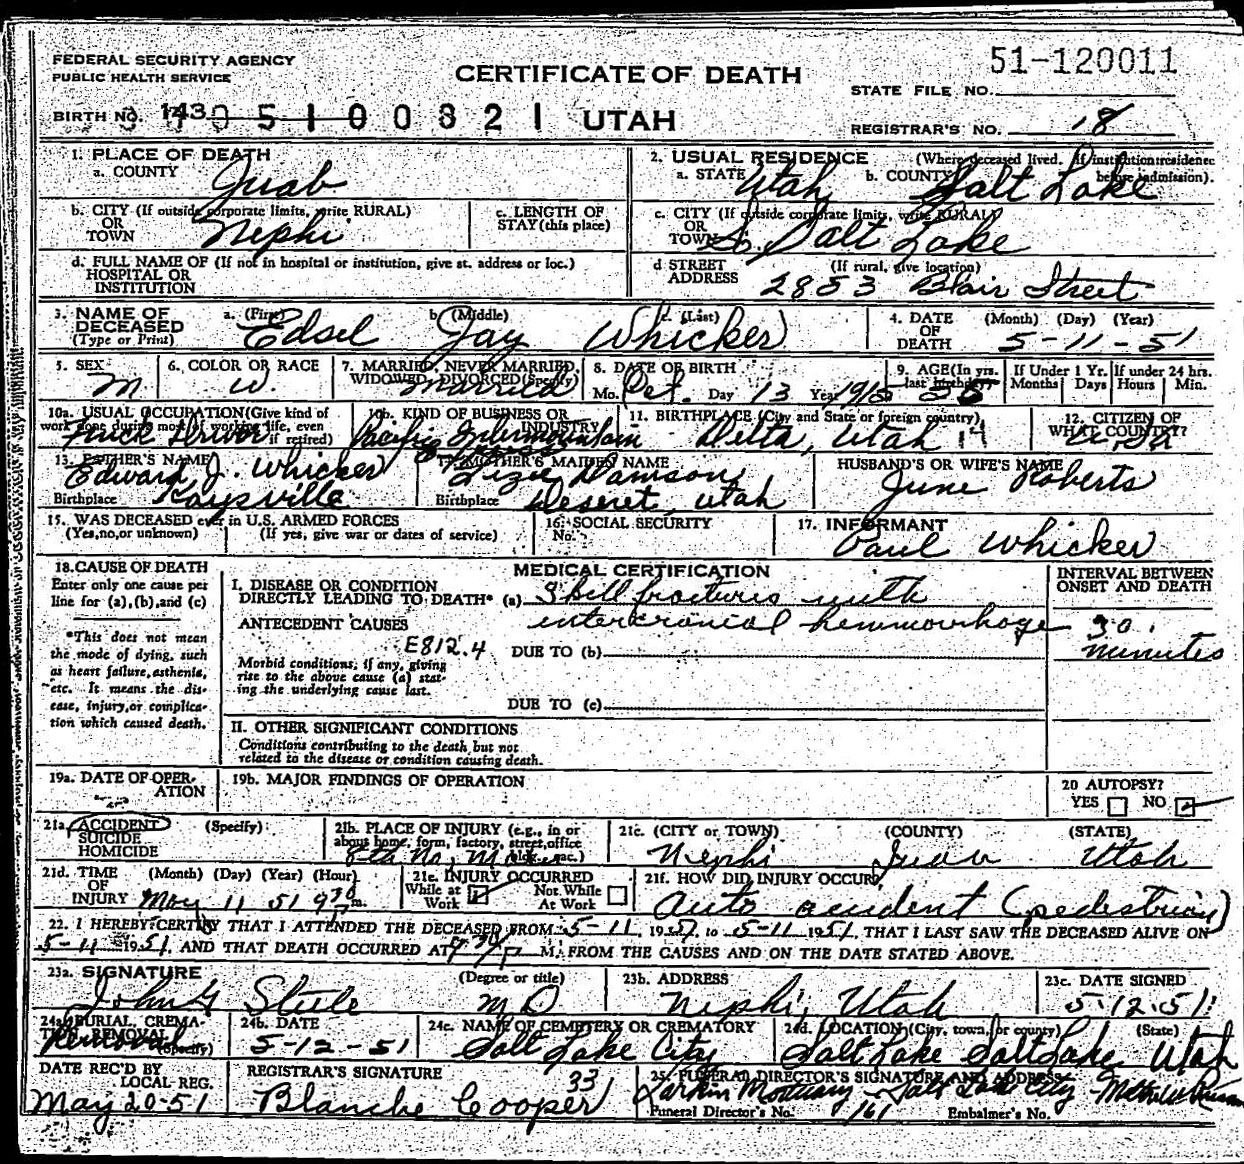 FEDERAL SECURITY AGENCY
PUBLIC HEALTH SERVICE
CERTIFICATE OF DEATH
51-120011
STATE FILE NO.
BIRTH NO. 143 05100321 UTAH
REGISTRAR'S NO. 18
1. PLACE OF DEATH
a. COUNTY Juab
2. USUAL RESIDENCE (Where deceased lived. If institution: residence before admission).
a. STATE Utah b. COUNTY Salt Lake
b. CITY (If outside corporate limits, write RURAL) OR TOWN Nephi
c. LENGTH OF STAY (this place)
c. CITY (If outside corporate limits, write RURAL) OR TOWN So. Salt Lake
d. FULL NAME OF (If not in hospital or institution, give st. address or loc.) HOSPITAL OR INSTITUTION
d STREET ADDRESS (If rural, give location) 2853 Blair Street
3. NAME OF DECEASED (Type or Print) a. (First) Edsel b. (Middle) Jay c. (Last) Whicker
4. DATE OF DEATH (Month) (Day) (Year) 5-11-51
5. SEX M
6. COLOR OR RACE W.
7. MARRIED, NEVER MARRIED, WIDOWED, DIVORCED (Specify) Married
8. DATE OF BIRTH Mo. Oct. Day 13 Year 1915
9. AGE (In yrs. last birthday) 35
If Under 1 Yr. Months Days
If under 24 hrs. Hours Min.
10a. USUAL OCCUPATION (Give kind of work done during most of working life, even if retired) Truck Driver
10b. KIND OF BUSINESS OR INDUSTRY Pacific Intermountain Express
11. BIRTHPLACE (City and State or foreign country) Delta, Utah
12. CITIZEN OF WHAT COUNTRY? U.S.A
13. FATHER'S NAME Edward J. Whicker
Birthplace Kaysville
14. MOTHER'S MAIDEN NAME Lizzie Damson
Birthplace Deseret, Utah
HUSBAND'S OR WIFE'S NAME June Roberts
15. WAS DECEASED ever in U.S. ARMED FORCES
(Yes, no, or unknown) (If yes, give war or dates of service)
16. SOCIAL SECURITY No.
17. INFORMANT Paul Whicker
18. CAUSE OF DEATH
Enter only one cause per line for (a), (b), and (c)
*This does not mean the mode of dying, such as heart failure, asthenia, etc. It means the disease, injury, or complication which caused death.
MEDICAL CERTIFICATION
INTERVAL BETWEEN ONSET AND DEATH
I. DISEASE OR CONDITION DIRECTLY LEADING TO DEATH* (a) Skull fractures with intercranial hemmorrhage
30 minutes
ANTECEDENT CAUSES
E812.4
DUE TO (b)
Morbid conditions, if any, giving rise to the above cause (a) stating the underlying cause last.
DUE TO (c)
II. OTHER SIGNIFICANT CONDITIONS
Conditions contributing to the death but not related to the disease or condition causing death.
19a. DATE OF OPERATION
19b. MAJOR FINDINGS OF OPERATION
20 AUTOPSY? YES NO
21a. ACCIDENT SUICIDE HOMICIDE (Specify)
21b. PLACE OF INJURY (e.g., in or about home, form, factory, street, office bldg., etc.) 8th No. Main
21c. (CITY or TOWN) (COUNTY) (STATE)
Nephi Juab Utah
21d. TIME OF INJURY (Month) (Day) (Year) (Hour) May 11 51 9 30 m.
21e. INJURY OCCURRED While at Work Not While At Work
21f. HOW DID INJURY OCCUR? Auto accident (pedestrian)
22. I HEREBY CERTIFY THAT I ATTENDED THE DECEASED FROM 5-11, 1951, to 5-11 1951, THAT I LAST SAW THE DECEASED ALIVE ON
5-11 1951, AND THAT DEATH OCCURRED AT P M., FROM THE CAUSES AND ON THE DATE STATED ABOVE.
23a. SIGNATURE (Degree or title) John G Steele M D
23b. ADDRESS Nephi, Utah
23c. DATE SIGNED 5.12.51
24a. BURIAL, CREMATION, REMOVAL (Specify) Removal
24b. DATE 5-12-51
24c. NAME OF CEMETERY OR CREMATORY Salt Lake City
24d. LOCATION (City, town, or county) (State) Salt Lake Salt Lake Utah
DATE REC'D BY LOCAL REG. May 20-51
REGISTRAR'S SIGNATURE Blanche Cooper 33
25. FUNERAL DIRECTOR'S SIGNATURE AND ADDRESS Larkin Mortuary Salt Lake City
Funeral Director's No. 161 Embalmer's No.